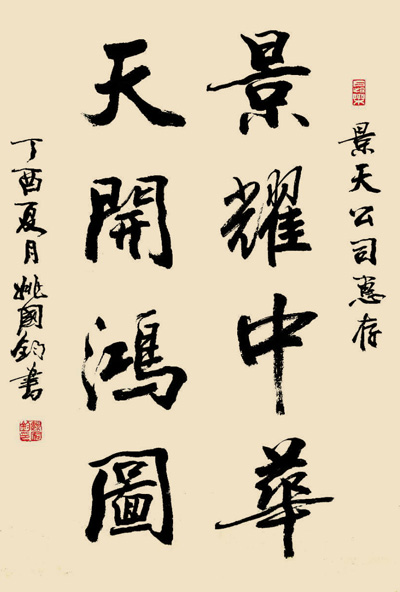 景天公司惠存
景耀中華
天開鴻圖
丁酉夏月姚國鈞書